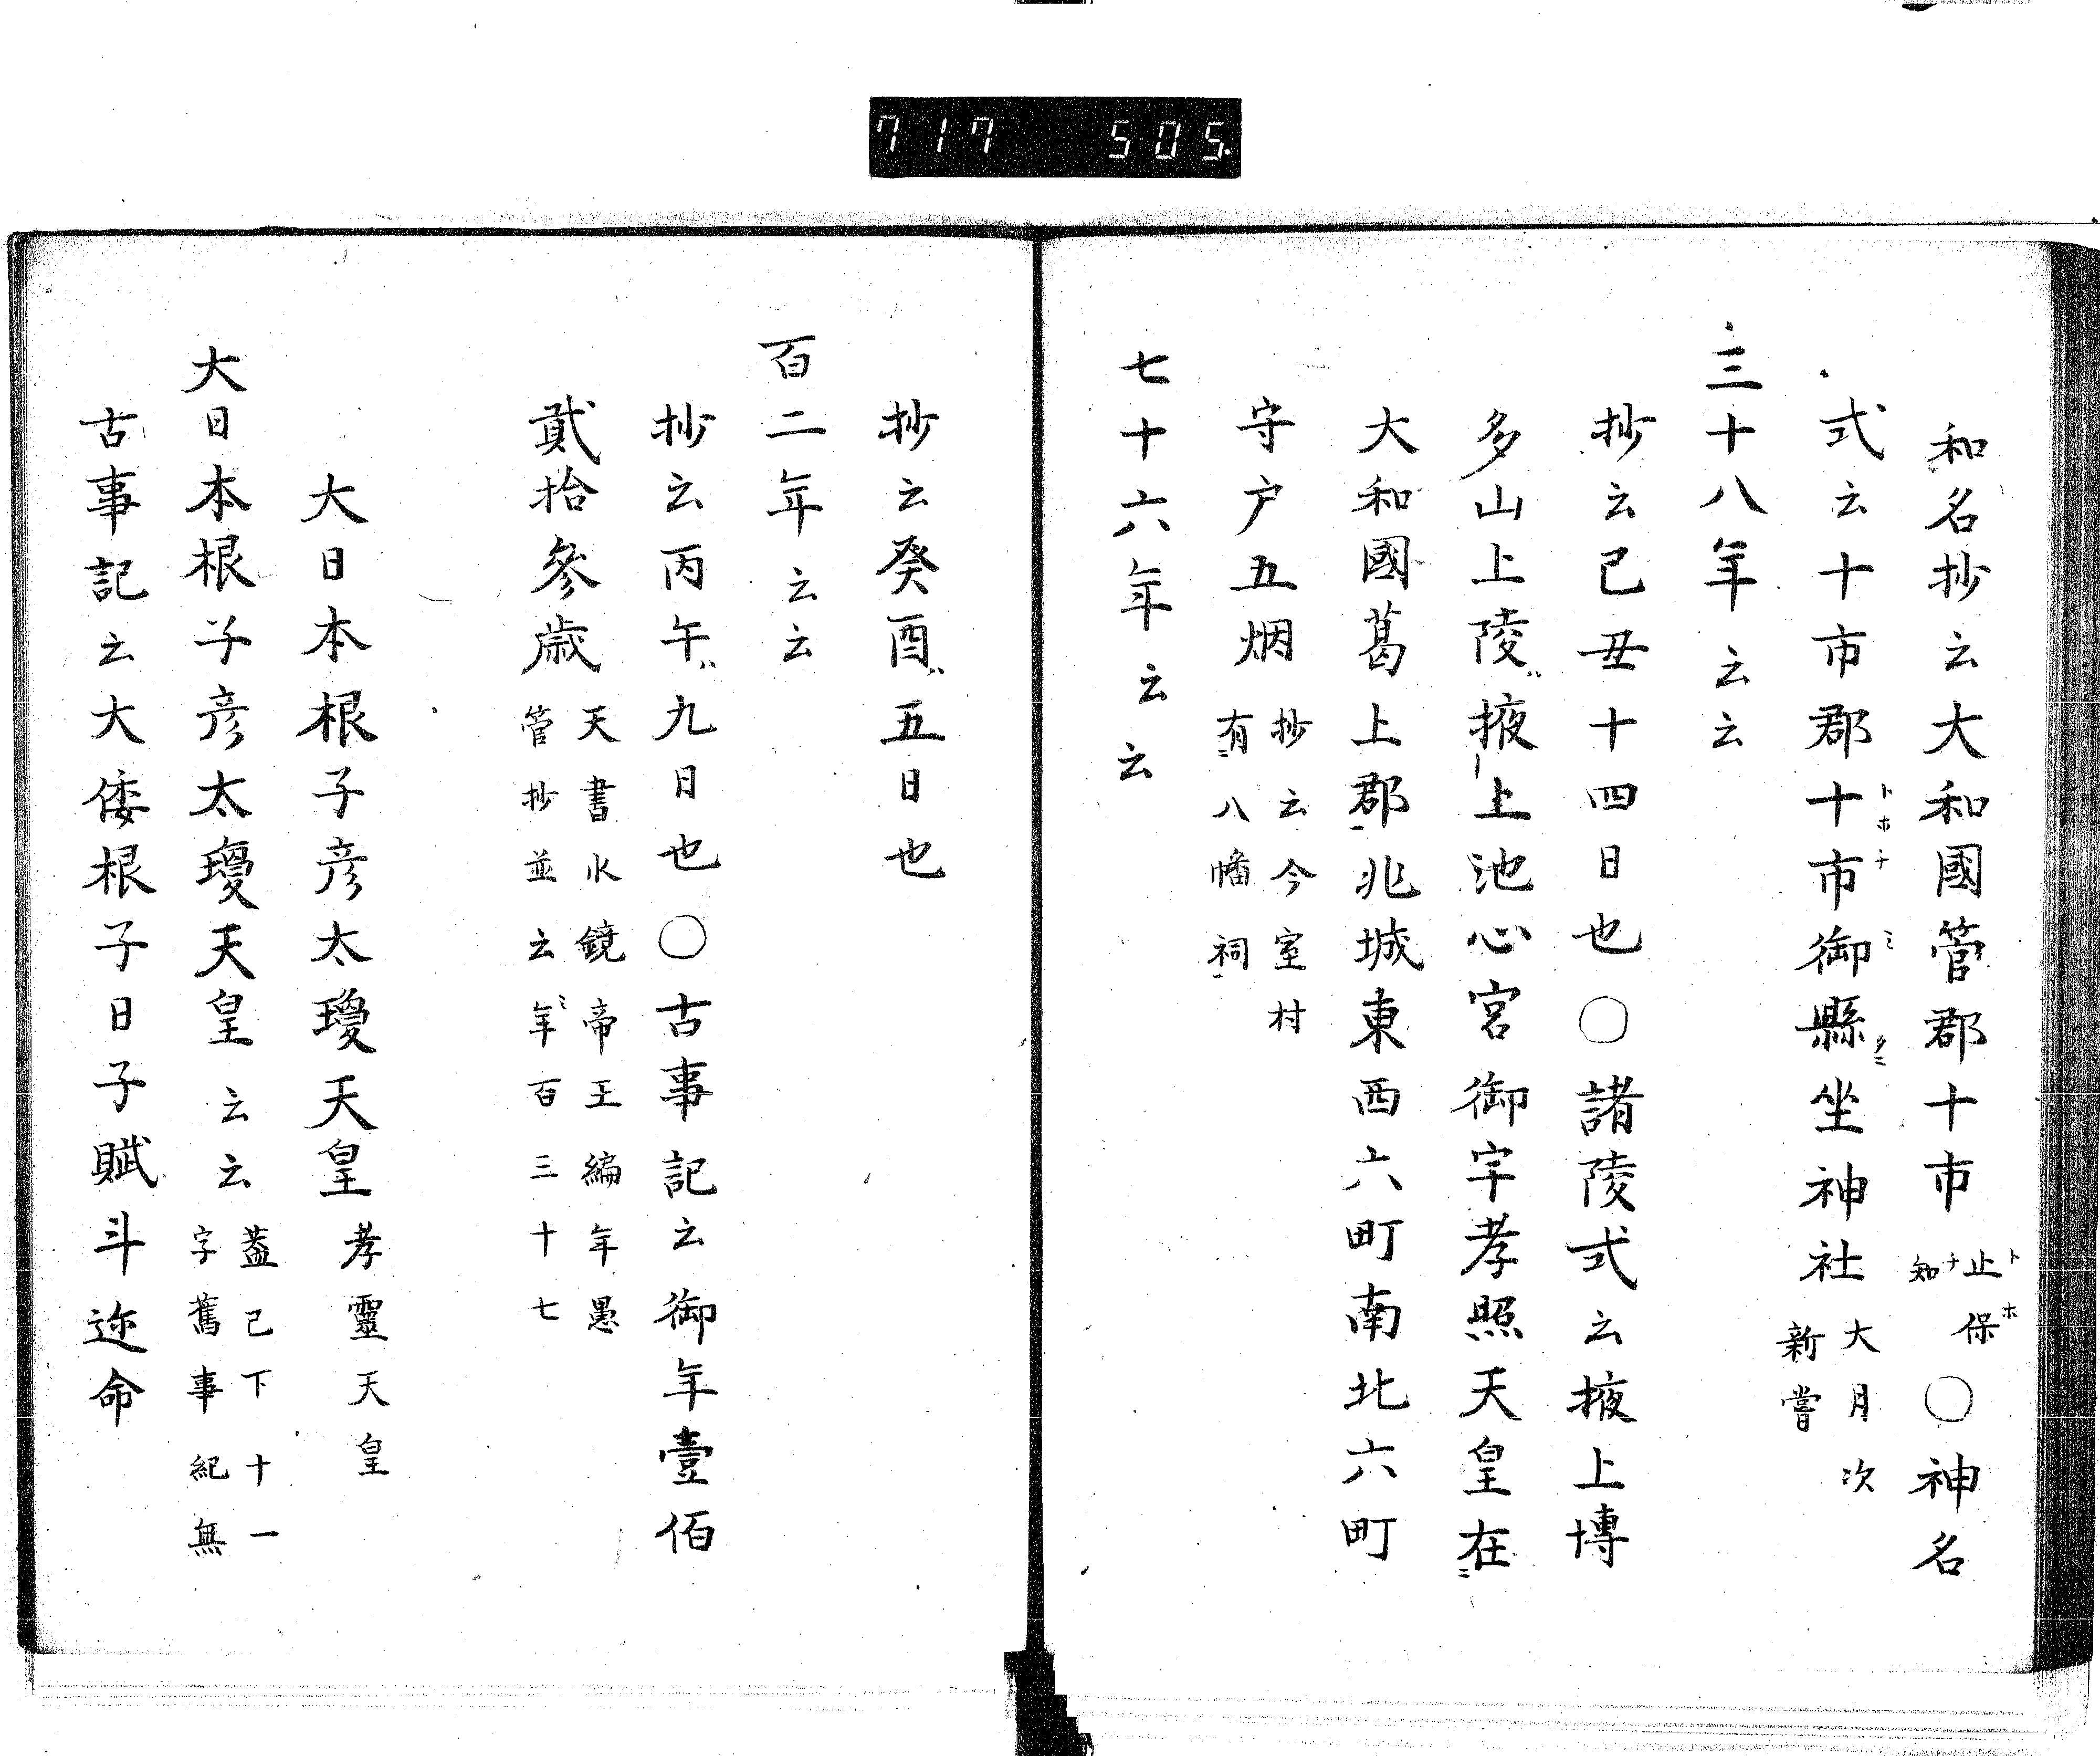 717 505.
和名抄云大和國管郡十市止保知○神名
式云十市郡十市御縣坐神社大月次新嘗
三十八年云云
抄云己丑十四日也○諸陵式云掖上博
多山上陵掖上池心宮御宇孝照天皇在
大和國葛上郡兆域東西六町南北六町
守戶五烟抄云今室村有八幡祠
七十六年云云
抄云癸酉五日也
百二年云云
抄云丙午九日也○古事記云御年壹佰
貳拾參歲天書水鏡帝王編年愚管抄並云年百三十七
大日本根子彦太瓊天皇孝靈天皇
大日本根子彦太瓊天皇云云蓋已下十一字舊事紀無
古事記云大倭根子日子賦斗迩命